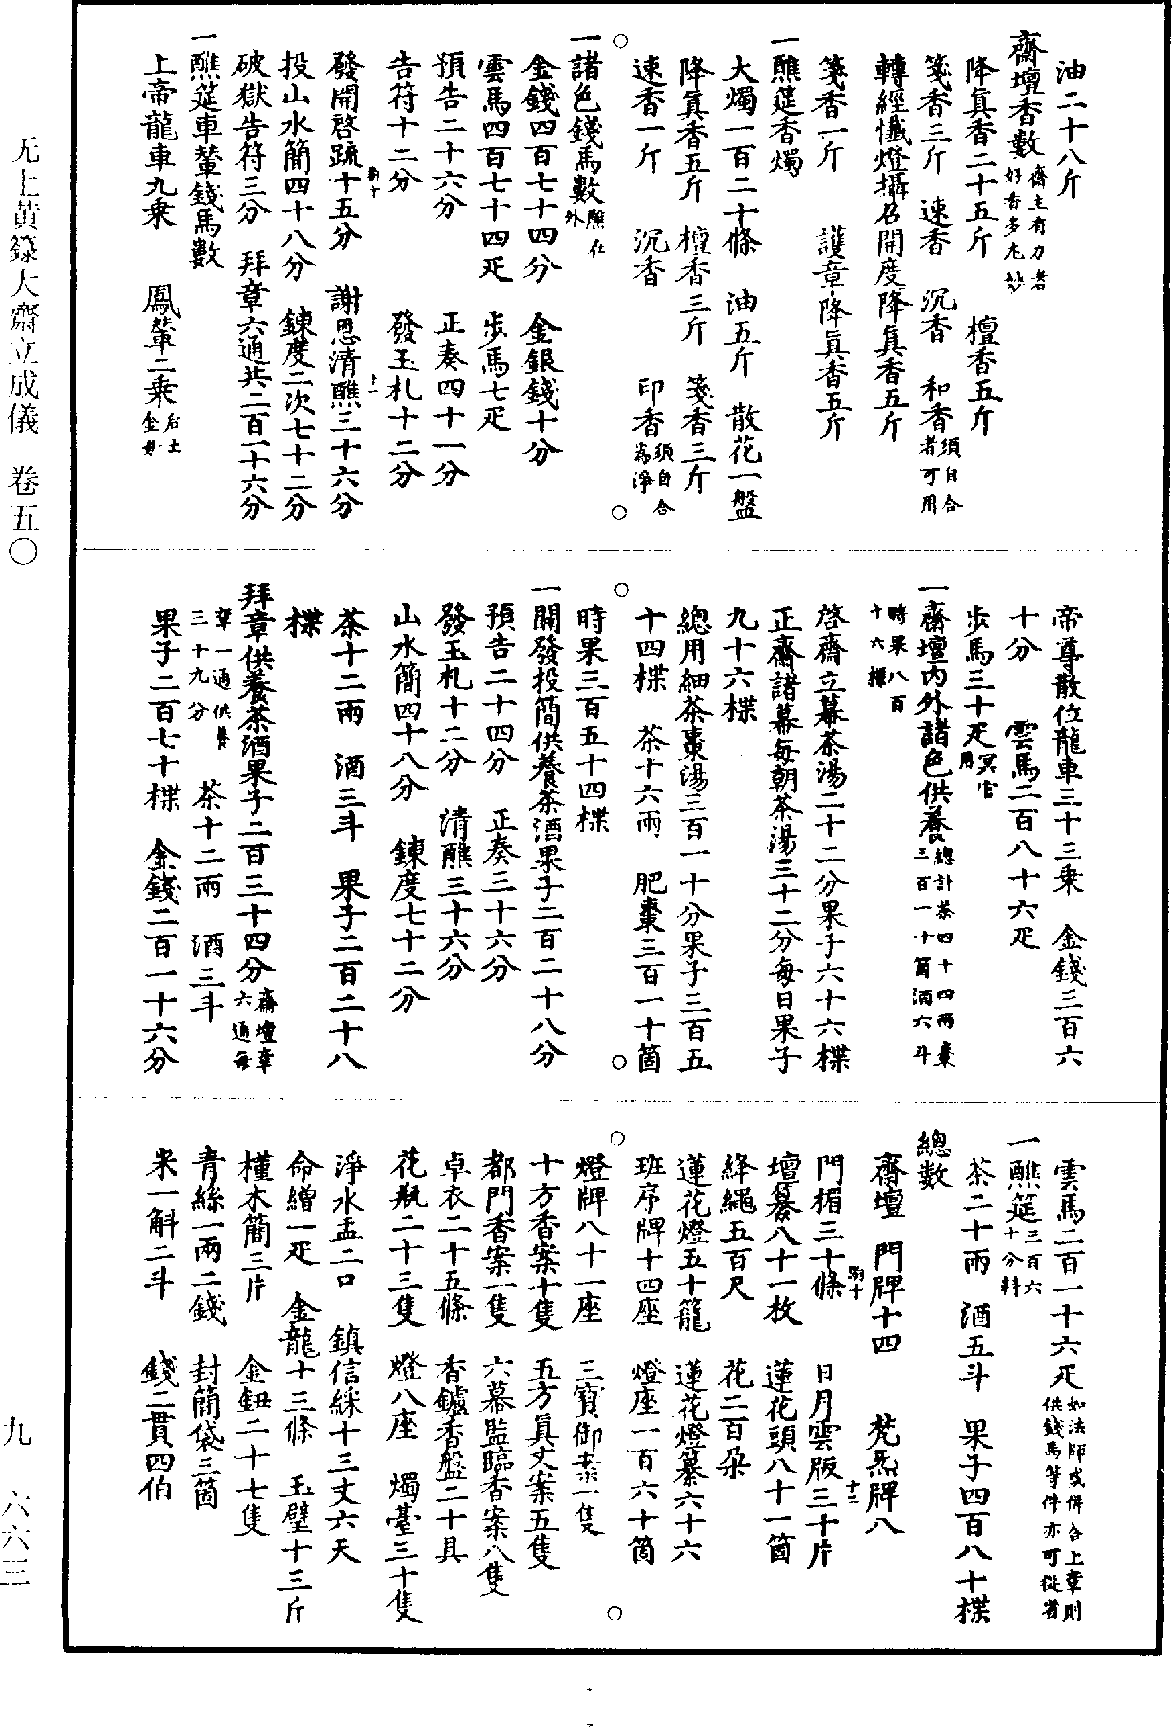 油二十八斤
齋壇香數齋主有力者好香多尤妙
降眞香二十五斤　檀香五斤
箋香三斤　速香　沉香　和香須自合者可用
轉經懺燈攝召開度降眞香五斤
箋香一斤　護章降眞香五斤
一醮筵香燭
大燭一百二十條　油五斤　散花一盤
降眞香五斤　檀香三斤　箋香三斤
速香一斤　沉香　印香須自合爲淨
一諸色錢馬數醮在外
金錢四百七十四分　金銀錢十分
雲馬四百七十四疋　步馬七疋
預告二十六分　正奏四十一分
告符十二分　發玉札十二分
發開啓疏十五分　謝恩清醮三十六分
投山水簡四十八分　鍊度二次七十二分
破獄告符三分　拜章六通共二百一十六分
一醮筵車輦錢馬數
上帝龍車九乘　鳳輦二乘后土金母
帝尊散位龍車三十三乘　金錢三百六
十分　雲馬二百八十六疋
步馬三十疋冥官用
一齋壇內外諸色供養總計茶四十四兩棗三百一十箇酒六斗
時果八百十六楪
啓齋立幕茶湯二十二分果子六十六楪
正齋諸幕每朝茶湯三十二分每日果子
九十六楪
總用細茶棗湯三百一十分果子三百五
十四楪　茶十六兩　肥棗三百一十箇
時果三百五十四楪
一開發投簡供養茶酒果子二百二十八分
預告二十四分　正奏三十六分
發玉札十二分　清醮三十六分
山水簡四十八分　鍊度七十二分
茶十二兩　酒三斗　果子二百二十八
楪
拜章供養茶酒果子二百三十四分齋壇章六通每
章一通供養三十九分　茶十二兩　酒三斗
果子二百七十楪　金錢二百一十六分
雲馬二百一十六疋如法師或併合上章則供錢馬等件亦可從省
一醮筵三百六十分料
茶二十兩　酒五斗　果子四百八十楪
總數
齋壇　門牌十四　梵炁牌八
門楣三十條　日月雲版三十片
壇纂八十一枚　蓮花頭八十一箇
絳繩五百尺　花二百朶
蓮花燈五十籠　蓮花燈纂六十六
班序牌十四座　燈座一百六十箇
燈牌八十一座　三寶御案一隻
十方香案十隻　五方眞文案五隻
都門香案一隻　六幕監臨香案八隻
卓衣二十五條　香鑪香盤二十具
花瓶二十三隻　燈八座　燭臺三十隻
淨水盂二口　鎮信綵十三丈六天
命繒一疋　金龍十三條　玉璧十三斤
槿木簡三片　金鈕二十七隻
青絲一兩二錢　封簡袋三箇
米一斛二斗　錢二貫四伯
无上黃籙大齋立成儀　卷五〇
九　六六三